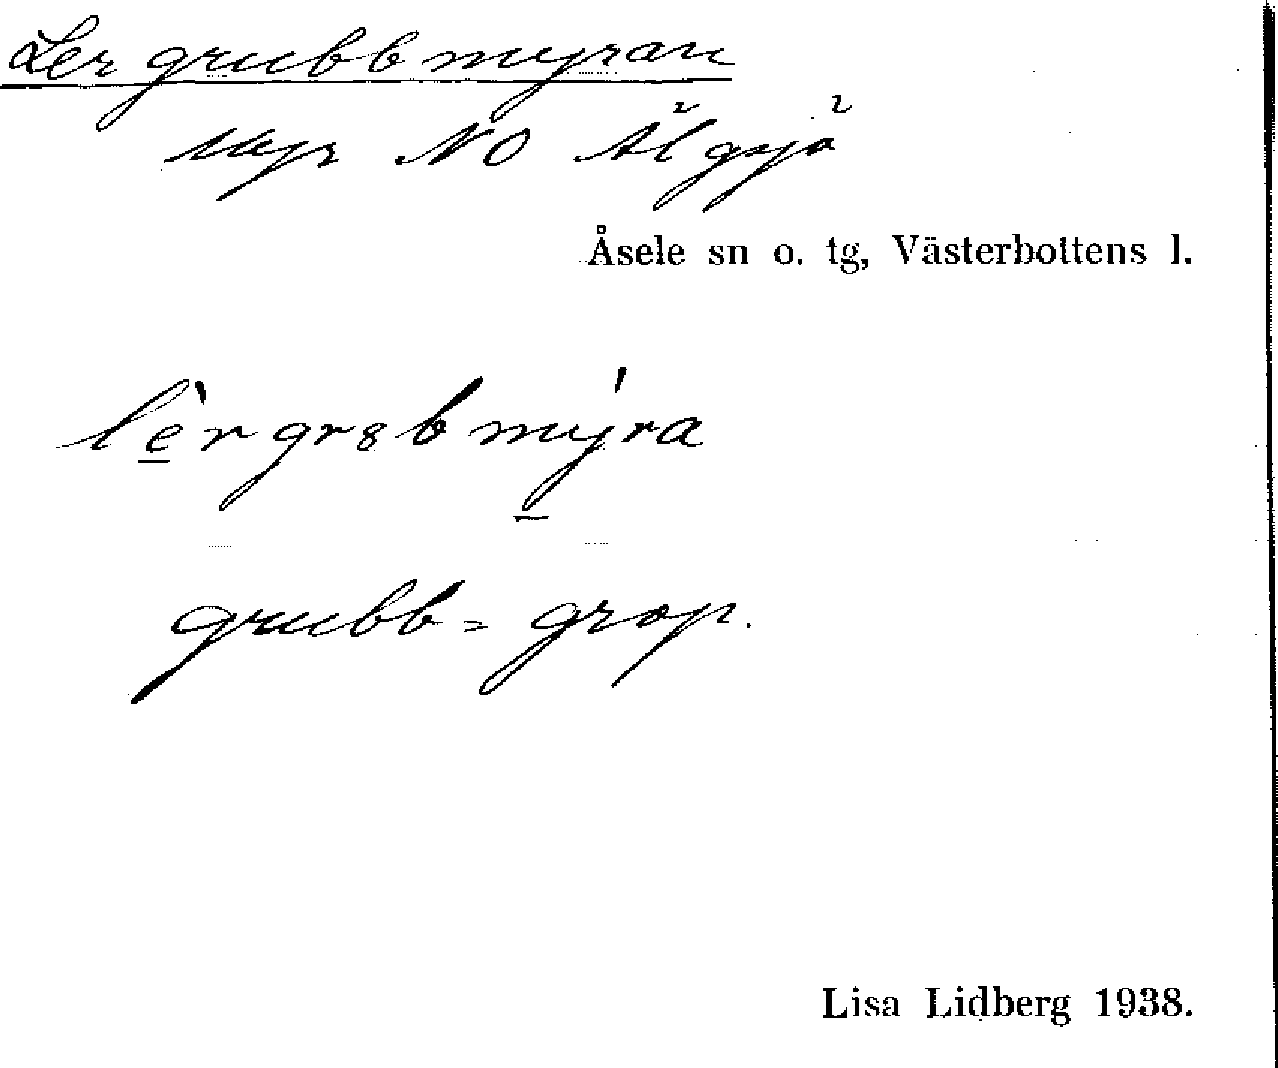 Lergrubbmyran
Myr NO Älgsjö
Åsele sn o. tg, Västerbottens l.
lè̱rgr8bmý̱ra
grubb = grop.
Lisa Lidberg 1938.